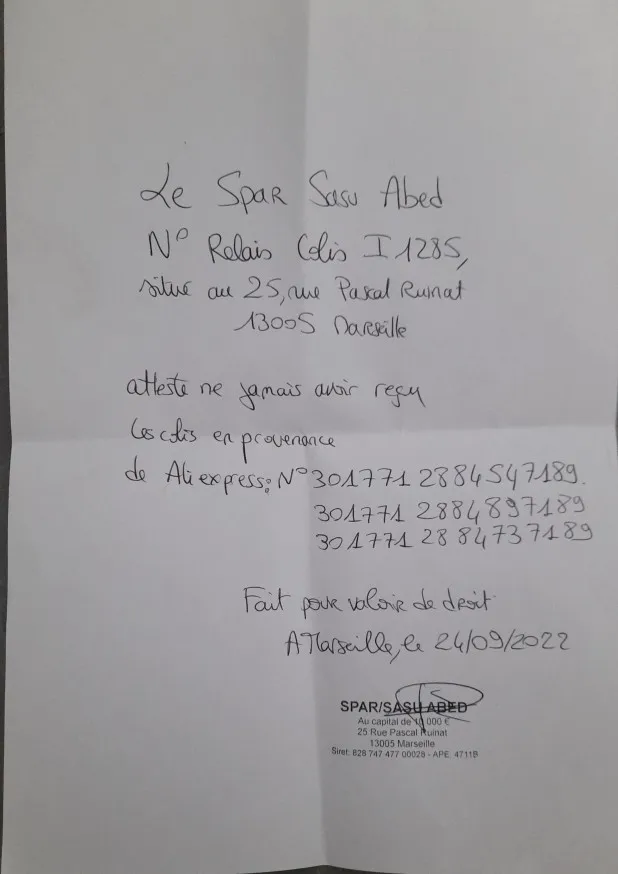 Le Spar Sasu Abed
N° Relais Colis I1285,
situé au 25, rue Pascal Ruinat
13005 Marseille
atteste ne jamais avoir reçu
les colis en provenance
de Aliexpress: N°301771 2884547189.
301771 2884897189
301771 2884737189
Fait pour valoir de droit
A Marseille, le 24/09/2022
SPAR/SASU ABED
Au capital de 10 000 €
25 Rue Pascal Ruinat
13005 Marseille
Siret: 828 747 477 00028 - APE: 4711B